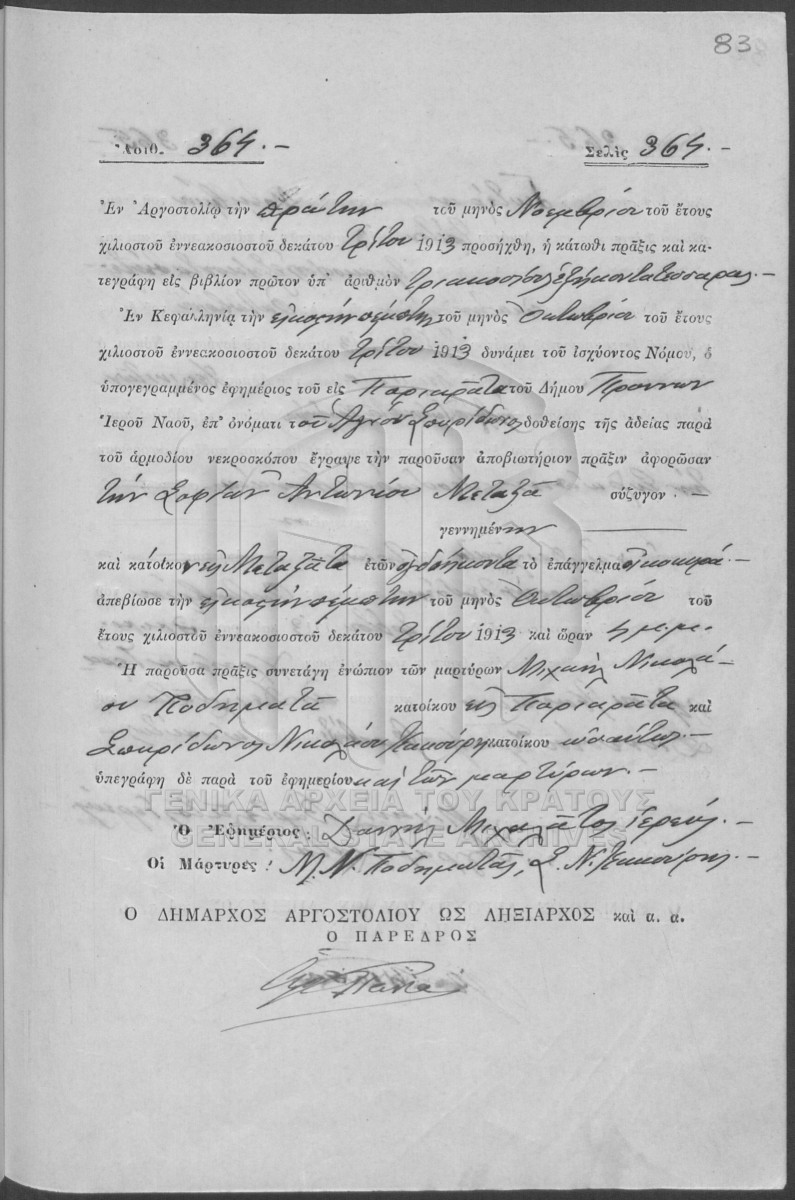 83
Ἀριθ. 364.— Σελὶς 364.—
Ἐν Ἀργοστολίῳ τὴν πρώτην τοῦ μηνὸς Νοεμβρίου τοῦ ἔτους
χιλιοστοῦ ἐννεακοσιοστοῦ δεκάτου τρίτου 1913 προσήχθη, ἡ κάτωθι πρᾶξις καὶ κα-
τεγράφη εἰς βιβλίον πρῶτον ὑπ' ἀριθμὸν τριακόσια ἑξήκοντα τέσσαρα.—
Ἐν Κεφαλληνίᾳ τὴν εἰκοστὴν πέμπτην τοῦ μηνὸς Ὀκτωβρίου τοῦ ἔτους
χιλιοστοῦ ἐννεακοσιοστοῦ δεκάτου τρίτου 1913 δυνάμει τοῦ ἰσχύοντος Νόμου, ὁ
ὑπογεγραμμένος ἐφημέριος τοῦ εἰς τοῦ Δήμου Πρόννων
Ἱεροῦ Ναοῦ, ἐπ' ὀνόματι τοῦ Ἁγίου Σπυρίδωνος δοθείσης τῆς ἀδείας παρὰ
τοῦ ἁρμοδίου νεκροσκόπου ἔγραψε τὴν παροῦσαν ἀποβιωτήριον πρᾶξιν ἀφορῶσαν
τὴν Σοφίαν Ἀντωνίου Μεταξᾶ σύζυγον.—
γεννημένην
καὶ κάτοικον εἰς Μεταξᾶτα ἐτῶν ὀγδοήκοντα τὸ ἐπάγγελμα οἰκοκυρά.—
ἀπεβίωσε τὴν εἰκοστὴν πέμπτην τοῦ μηνὸς Ὀκτωβρίου τοῦ
ἔτους χιλιοστοῦ ἐννεακοσιοστοῦ δεκάτου τρίτου 1913 καὶ ὥραν 4 μ.μ.
Ἡ παροῦσα πρᾶξις συνετάγη ἐνώπιον τῶν μαρτύρων Μιχαὴλ Νικολά-
ου Ποδηματᾶ κατοίκου εἰς καὶ
Σπυρίδωνος Νικολάου κατοίκου ὡσαύτως.—
ὑπεγράφη δὲ παρὰ τοῦ ἐφημερίου καὶ τῶν μαρτύρων.—
ΓΕΝΙΚΑ ΑΡΧΕΙΑ ΤΟΥ ΚΡΑΤΟΥΣ
GENERAL STATE ARCHIVES
Ὁ Ἐφημέριος: Δανιὴλ Μιχαλᾶτος ἱερεύς.—
Οἱ Μάρτυρες: Μ. Ν. Ποδηματᾶς, Σ. Ν.
Ο ΔΗΜΑΡΧΟΣ ΑΡΓΟΣΤΟΛΙΟΥ ΩΣ ΛΗΞΙΑΡΧΟΣ καὶ α. α.
Ο ΠΑΡΕΔΡΟΣ